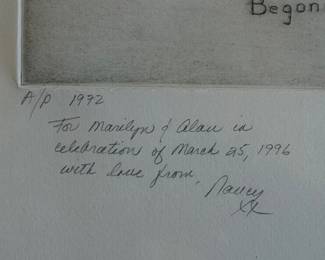 Begon
A/P 1992
For Marilyn & Alan in
celebration of March 25, 1996
with love from,
Nancy
xx